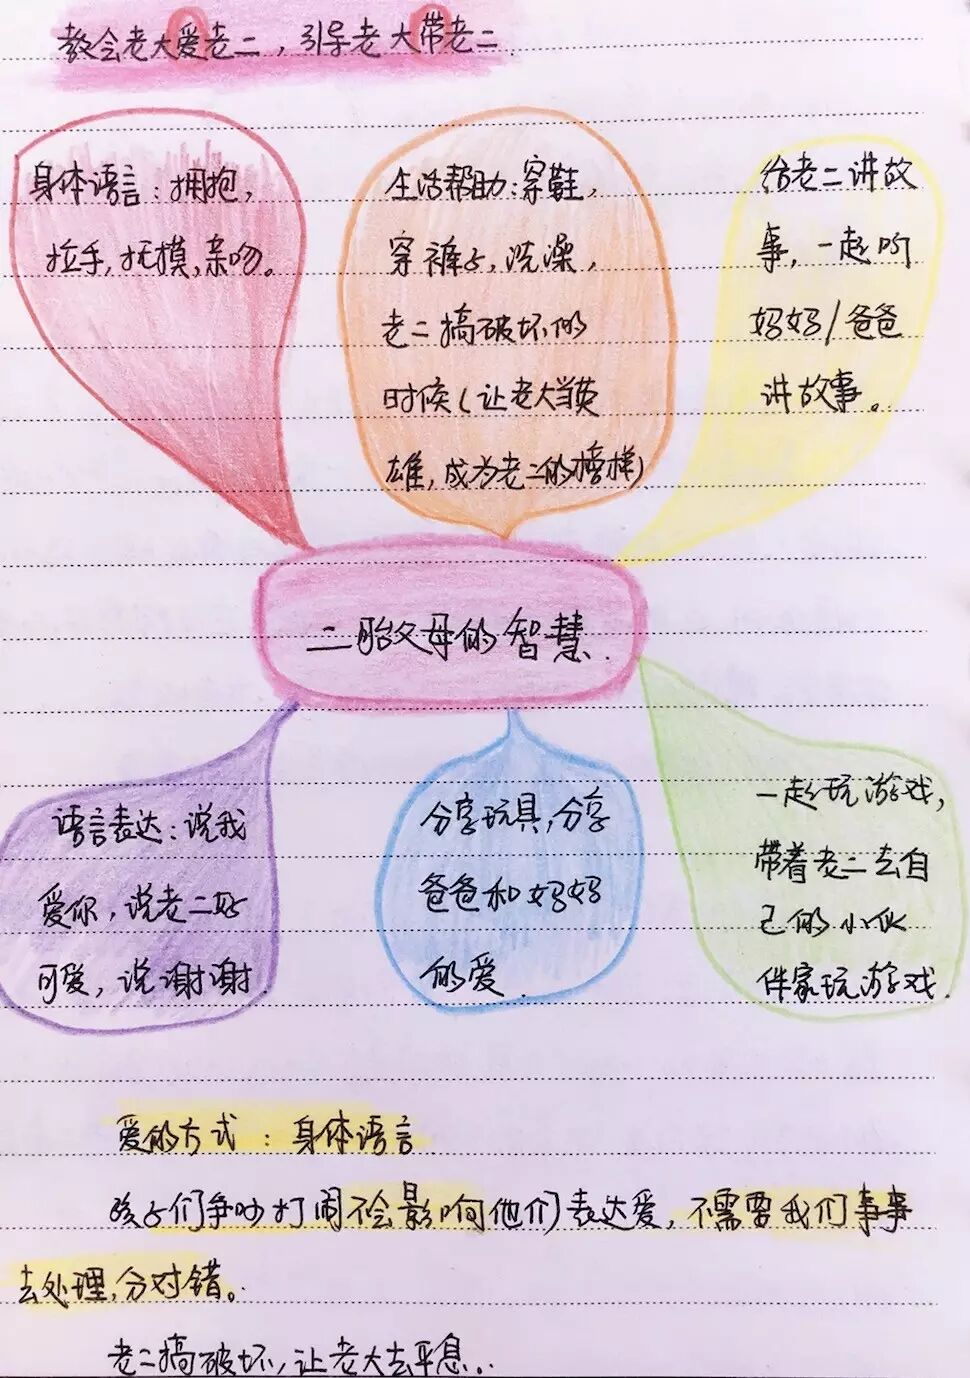 教会老大爱老二，引导老大带老二.
身体语言：拥抱，
拉手，抚摸，亲吻。
生活帮助：穿鞋，
穿裤子，洗澡，
老二搞破坏的
时候（让老大当英
雄，成为老二的榜样）
给老二讲故
事，一起听
妈妈/爸爸
讲故事。
二胎父母的智慧.
语言表达：说我
爱你，说老二好
可爱，说谢谢
分享玩具，分享
爸爸和妈妈
的爱.
一起玩游戏，
带着老二去自
己的小伙
伴家玩游戏.
爱的方式：身体语言
孩子们争吵打闹不会影响他们表达爱，不需要我们事事
去处理，分对错。
老二搞破坏，让老大去平息。